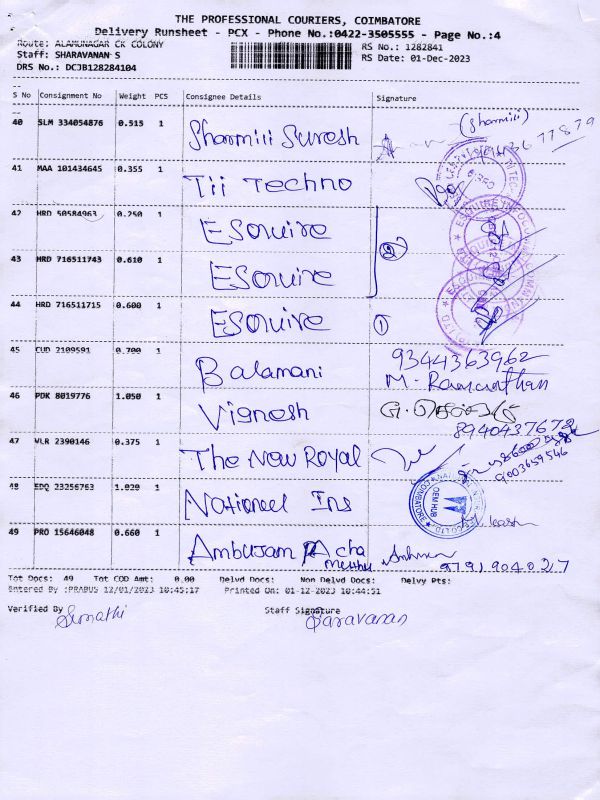 THE PROFESSIONAL COURIERS, COIMBATORE
Delivery Runsheet - PCX - Phone No.:0422-3505555 - Page No.:4
Route: ALAMUNAGAR CK COLONY
RS No.: 1282841
Staff: SHARAVANAN S
RS Date: 01-Dec-2023
DRS No.: DCJB128284104
S No Consignment No Weight PCS Consignee Details Signature
40 SLM 334054876 0.515 1 Sharmili Suresh (Sharmili)
41 MAA 101434645 0.355 1 Tii Techno
42 HRD 50584963 0.250 1 ESquire
43 HRD 716511743 0.610 1 ESquire 2
44 HRD 716511715 0.600 1 ESquire 1
45 CUD 2109591 0.700 1 Balamani 9344363962
46 PDK 8019776 1.050 1 Vignesh
8940437678
47 VLR 2390146 0.375 1 The New Royal
9003659546
48 EDQ 23256763 1.020 1 National Ins
OEM HUB
49 PRO 15646048 0.660 1 Ambujam
9791904027
Tot Docs: 49 Tot COD Amt: 0.00 Delvd Docs: Non Delvd Docs: Delvy Pts:
Entered By :PRABUS 12/01/2023 10:45:17 Printed On: 01-12-2023 10:44:51
Verified By Staff Signature
Sumathi Saravanan